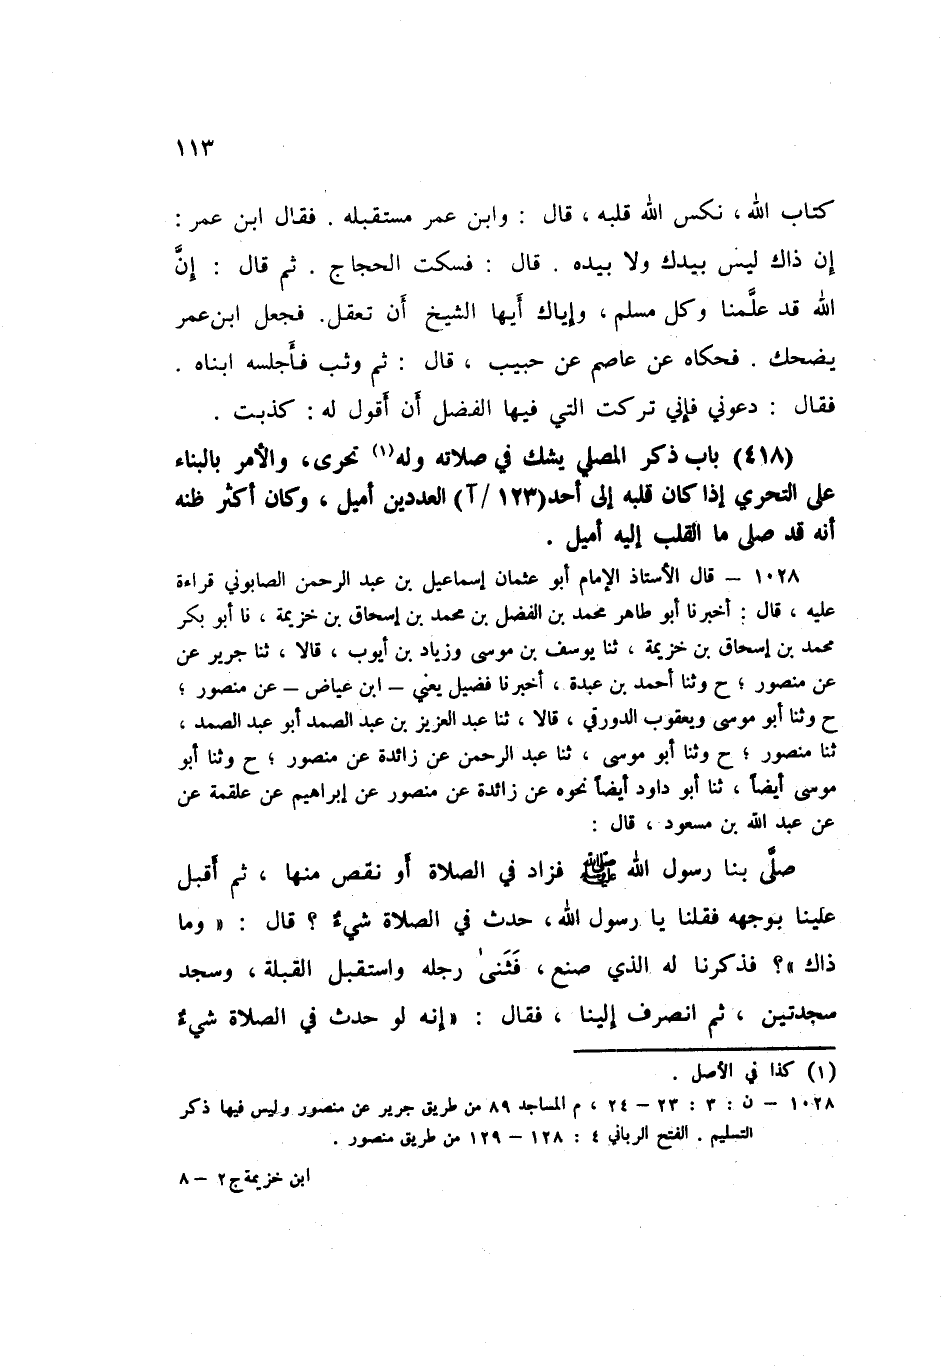 ١١٣
كتاب الله ، نكس الله قلبه ، قال : وابن عمر مستقبله . فقال ابن عمر :
إن ذاك ليس بيدك ولا بيده . قال : فسكت الحجاج . ثم قال : إنَّ
الله قد علَّمنا وكل مسلم ، وإياك أيها الشيخ أن تعقل. فجعل ابن عمر
يضحك . فحكاه عن عاصم عن حبيب ، قال : ثم وثب فأجلسه ابناه .
فقال : دعوني فإني تركت التي فيها الفضل أن أقول له : كذبت .
(٤١٨) باب ذكر المصلي يشك في صلاته وله(١) تحرى، والأمر بالبناء
على التحري إذا كان قلبه إلى أحد(١٢٣/آ) العددين أميل ، وكان أكثر ظنه
أنه قد صلى ما القلب إليه أميل .
١٠٢٨ – قال الأستاذ الإمام أبو عثمان إسماعيل بن عبد الرحمن الصابوني قراءة
عليه ، قال : أخبرنا أبو طاهر محمد بن الفضل بن محمد بن إسحاق بن خزيمة ، نا أبو بكر
محمد بن إسحاق بن خزيمة ، ثنا يوسف بن موسى وزياد بن أيوب ، قالا ، ثنا جرير عن
عن منصور ؛ ح وثنا أحمد بن عبدة ، أخبرنا فضيل يعني – ابن عياض – عن منصور ؛
ح وثنا أبو موسى ويعقوب الدورقي ، قالا ، ثنا عبد العزيز بن عبد الصمد أبو عبد الصمد ،
ثنا منصور ؛ ح وثنا أبو موسى ، ثنا عبد الرحمن عن زائدة عن منصور ؛ ح وثنا أبو
موسى أيضاً ، ثنا أبو داود أيضاً نحوه عن زائدة عن منصور عن إبراهيم عن علقمة عن
عن عبد الله بن مسعود ، قال :
صلَّى بنا رسول الله ﷺ فزاد في الصلاة أو نقص منها ، ثم أقبل
علينا بوجهه فقلنا يا رسول الله ، حدث في الصلاة شيءٌ ؟ قال : « وما
ذاك »؟ فذكرنا له الذي صنع ، فَثَنىٰ رجله واستقبل القبلة ، وسجد
سجدتين ، ثم انصرف إلينا ، فقال : «إنه لو حدث في الصلاة شيءٌ
(١) كذا في الأصل .
١٠٢٨ – ن : ٣ : ٢٣ – ٢٤ ، م المساجد ٨٩ من طريق جرير عن منصور وليس فيها ذكر
التسليم . الفتح الرباني ٤ : ١٢٨ – ١٢٩ من طريق منصور .
ابن خزيمة ج٢ – ٨